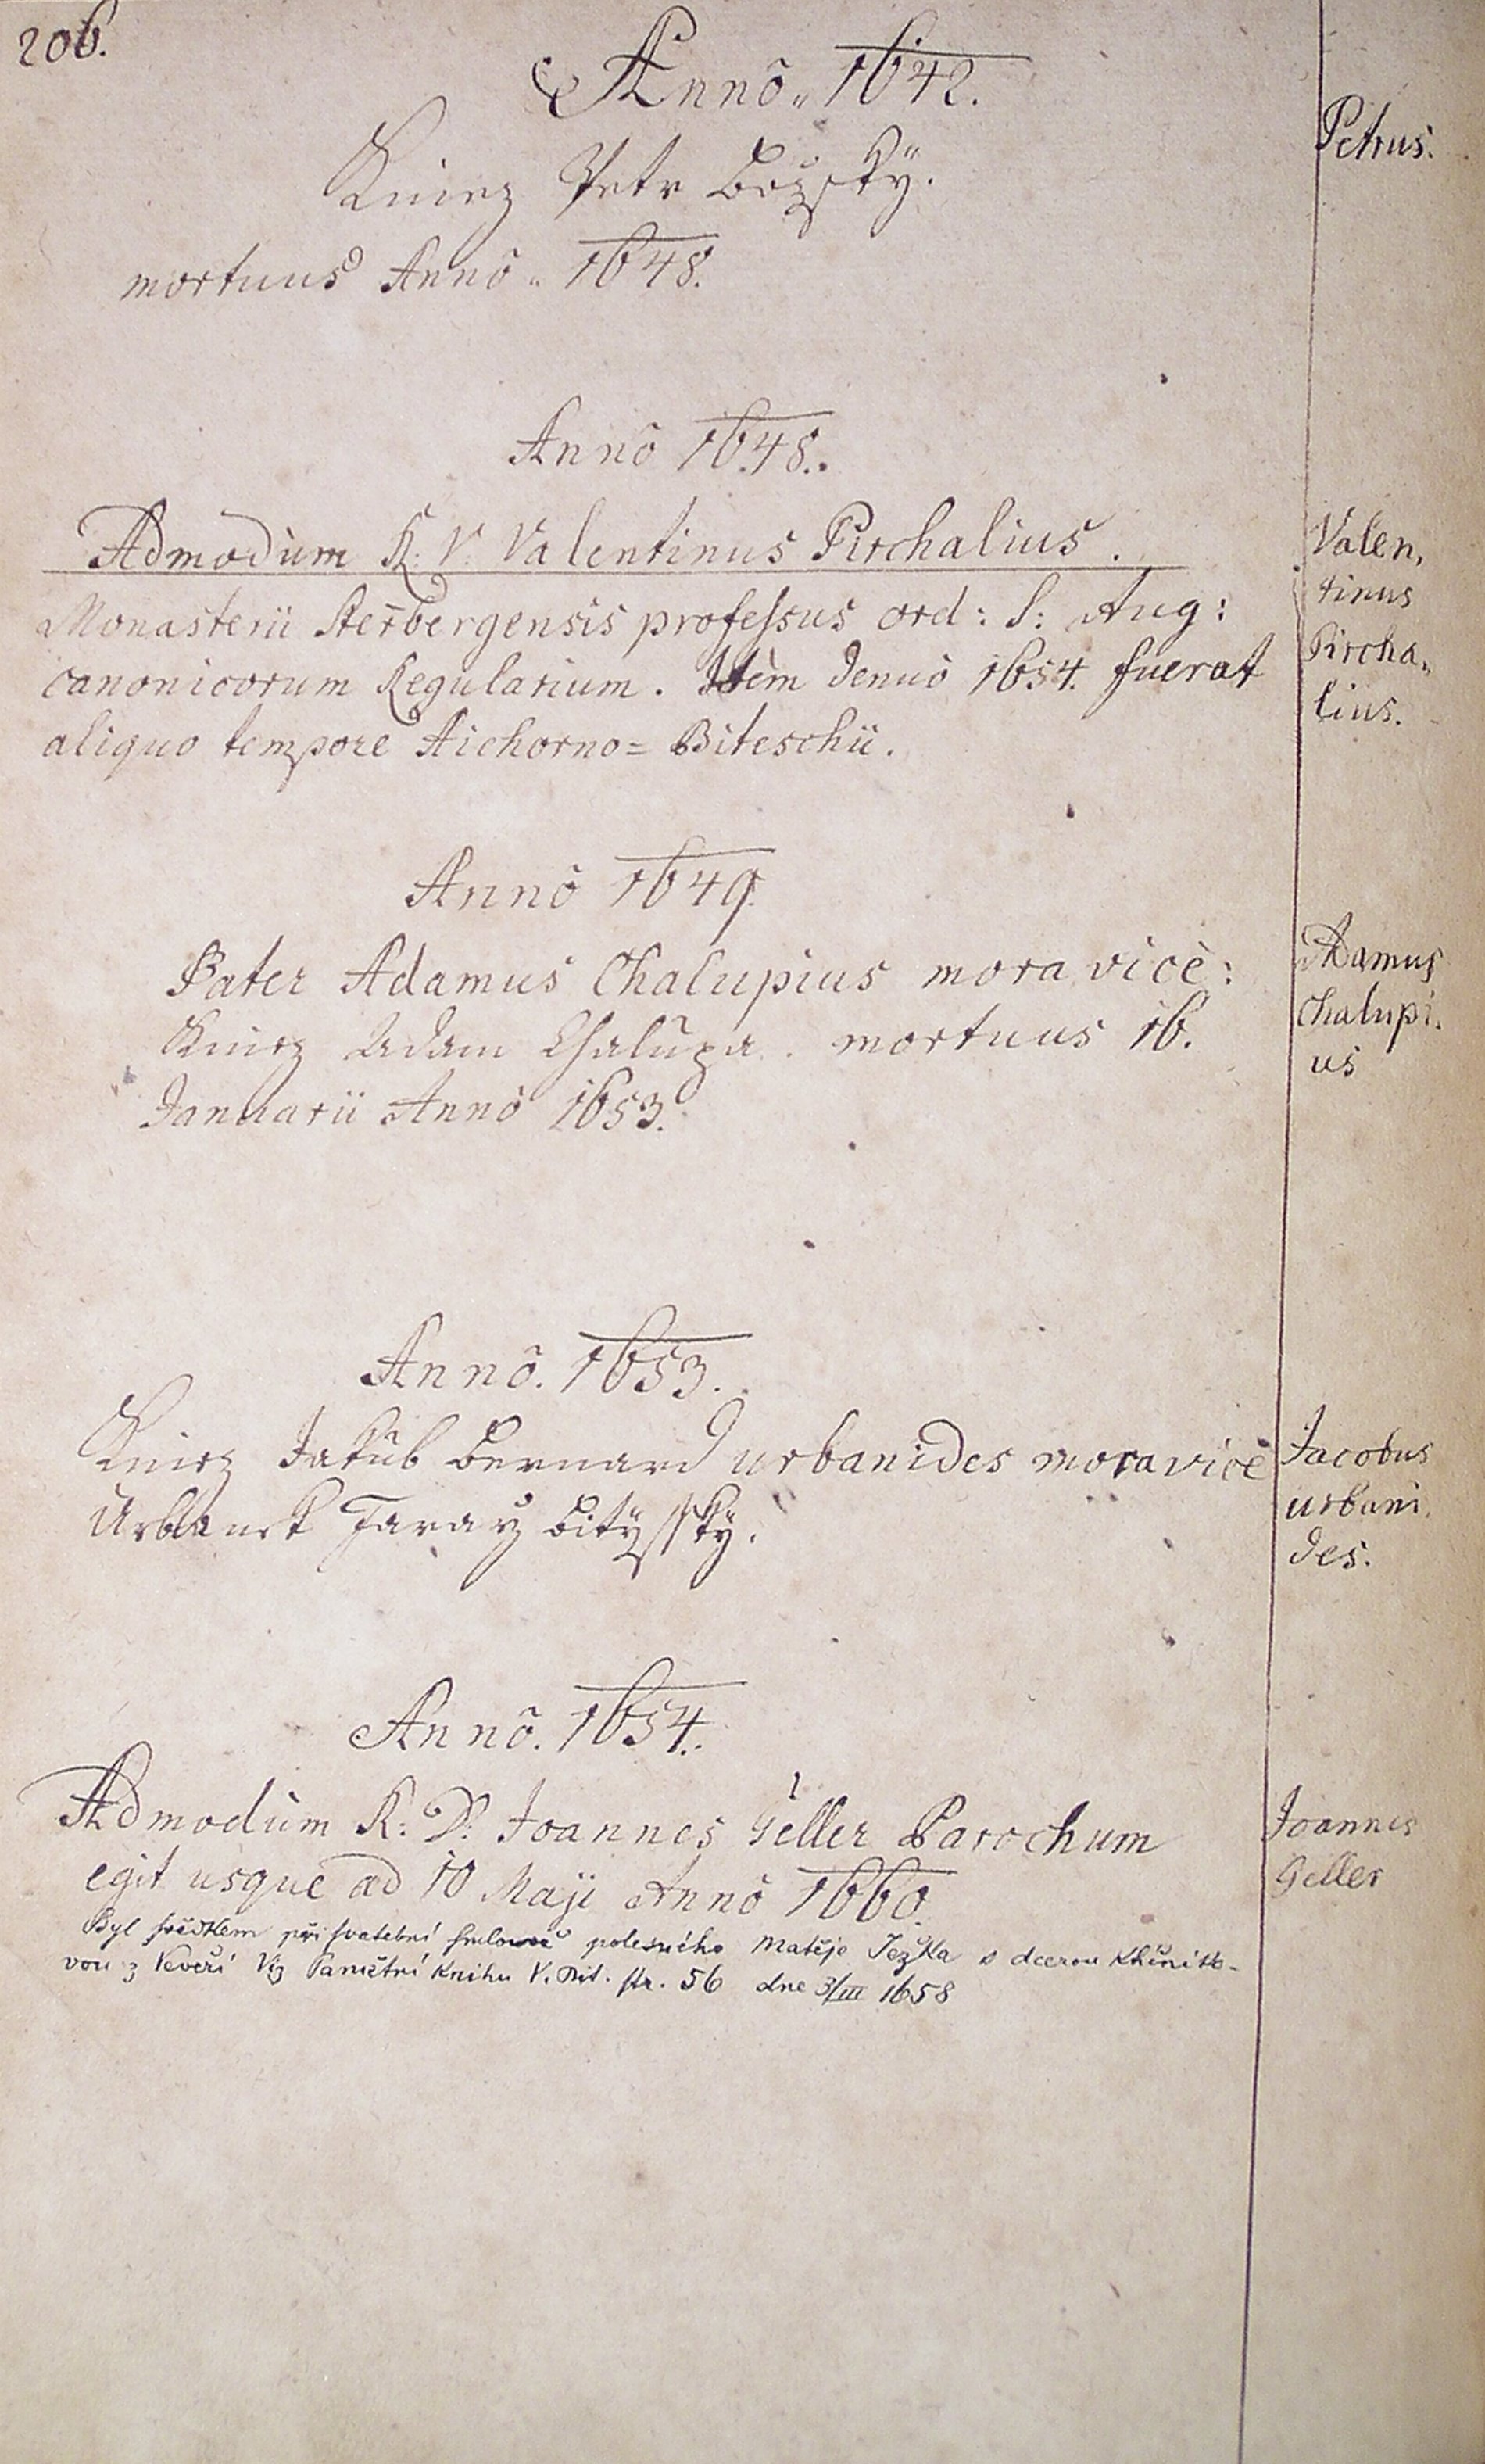 206.
Annô. 1642.
Petrus.
Kniez Petr Božskÿ.
mortuus Annô. 1648.
Annô 1648.
Admodùm R: V: Valentinus Pirchalius.
Monasterii Sterbergensis professus ord: S: Aug:
canonicorum Regularium. Itèm denuò 1654. fuerat
aliquo tempore Aichorno= Biteschii.
Valen,
tinus
Pircha,,
lius.
Annô 1649.
Pater Adamus Chalupius moravicè:
Kniez Adam Chalupa. mortuus 16.
Januarii Annô 1653.
Adamus
Chalupi.
us
Annô. 1653.
Kniez Jakub Bernard Urbanides moravicè
Urbanek Faraŕz Bitysskÿ.
Jacobus
urbani,
des.
Annô. 1654.
Admodùm R: D: Joannes Geller Parochum
egit usque ad 10 Maji Annô 1660.
Joannes
Geller
Byl svědkem při svatební smlouvě polesného Matěje Ježka s dcerou
vou z Veveří Viz Pamětní Knihu V. Bit. str. 56 dne 3/III 1658